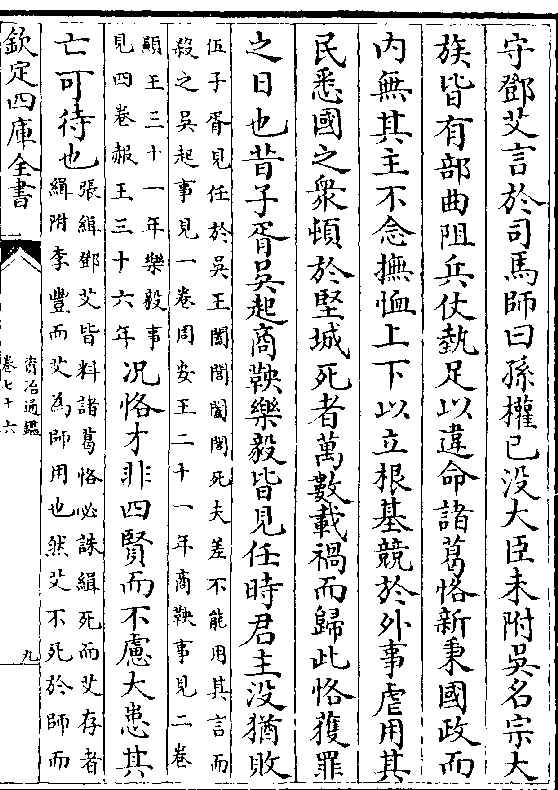 守鄧艾言於司馬師曰孫權已没大臣未附吳名宗大
族皆有部曲阻兵仗埶足以違命諸葛恪新秉國政而
内無其主不念撫恤上下以立根基競於外事虐用其
民悉國之衆頓於堅城死者萬數載禍而歸此恪獲罪
之日也昔子胥吳起商鞅樂毅皆見任時君主没猶敗
伍子胥見任於吳王闔閭闔閭死夫差不能用其言而
殺之吳起事見一卷周安王二十一年商鞅事見二卷
顯王三十一年樂毅事
見四卷赧王三十六年
况恪才非四賢而不慮大患其
亡可待也
張緝鄧艾皆料諸葛恪必誅緝死而艾存者
緝附李豐而艾為師用也然艾不死於師而
欽定四庫全書
資治通鑑
卷七十六
九